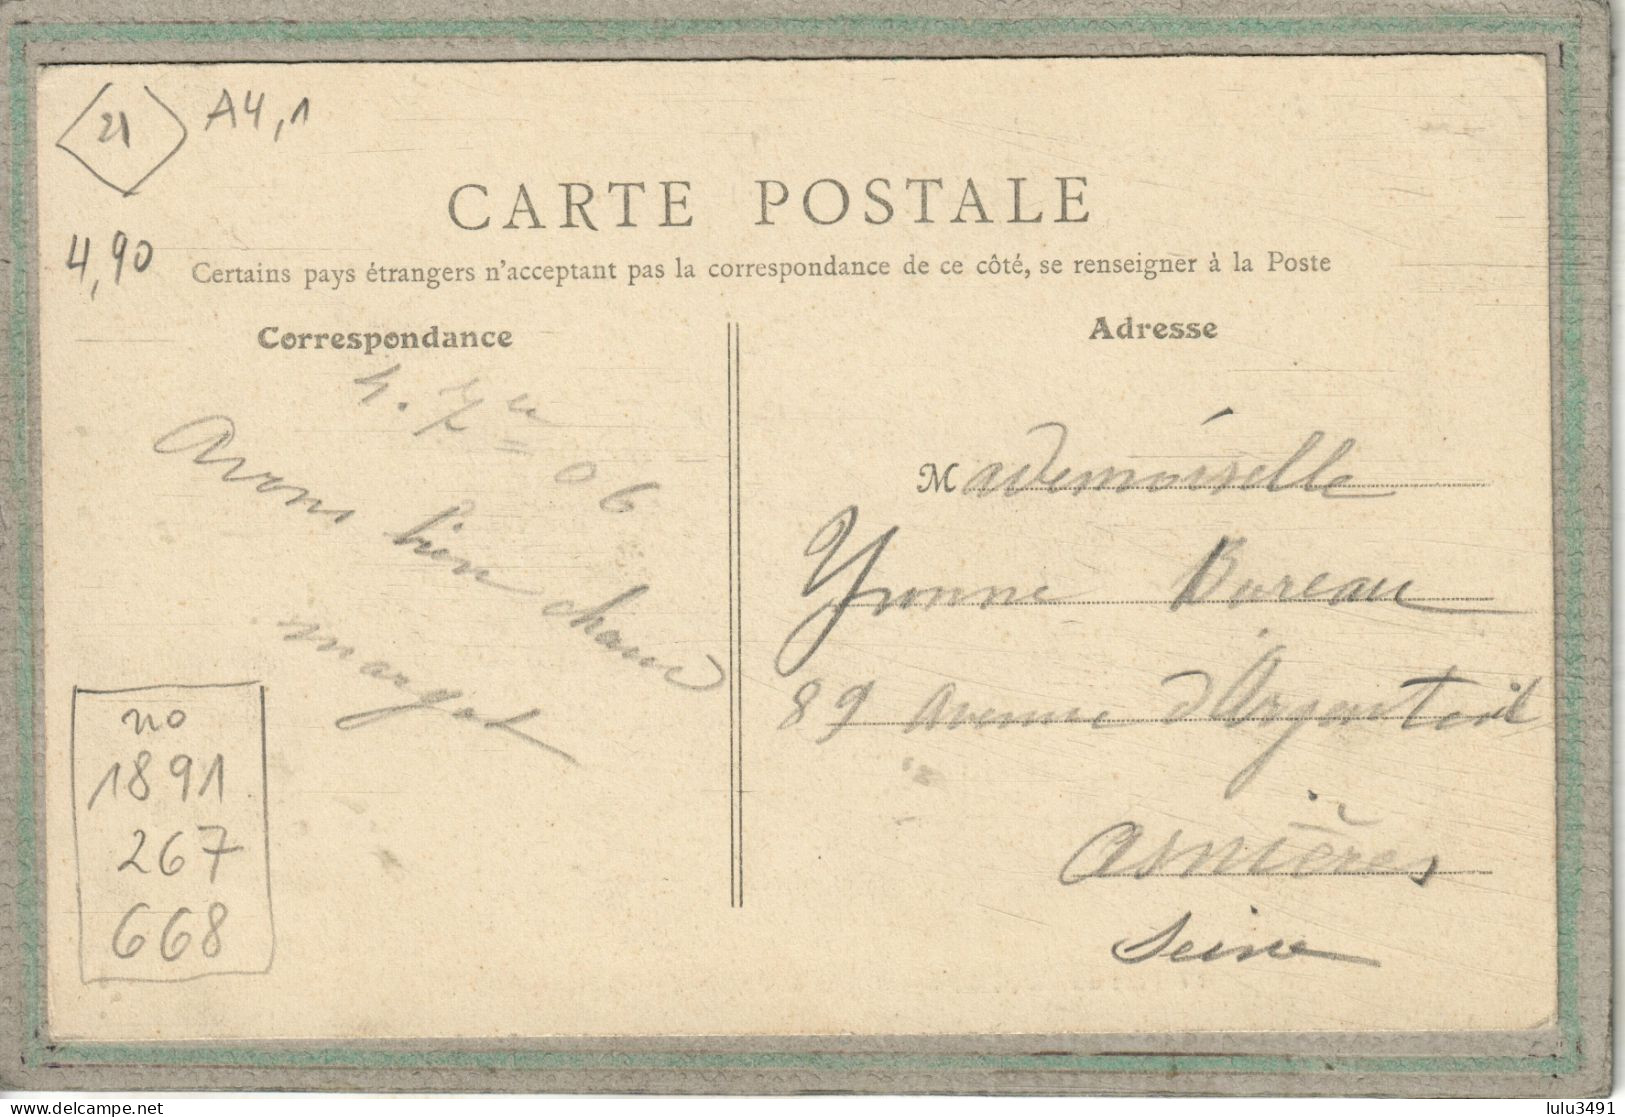 21
A4,1
CARTE POSTALE
4,90
Certains pays étrangers n'acceptant pas la correspondance de ce côté, se renseigner à la Poste
Correspondance
4. 7re 06
Avons bien chaud
margot
no
1891
267
668
Adresse
Mademoiselle
Yvonne Bureau
89 Avenue d'Argenteuil
Asnières
Seine
lulu3491